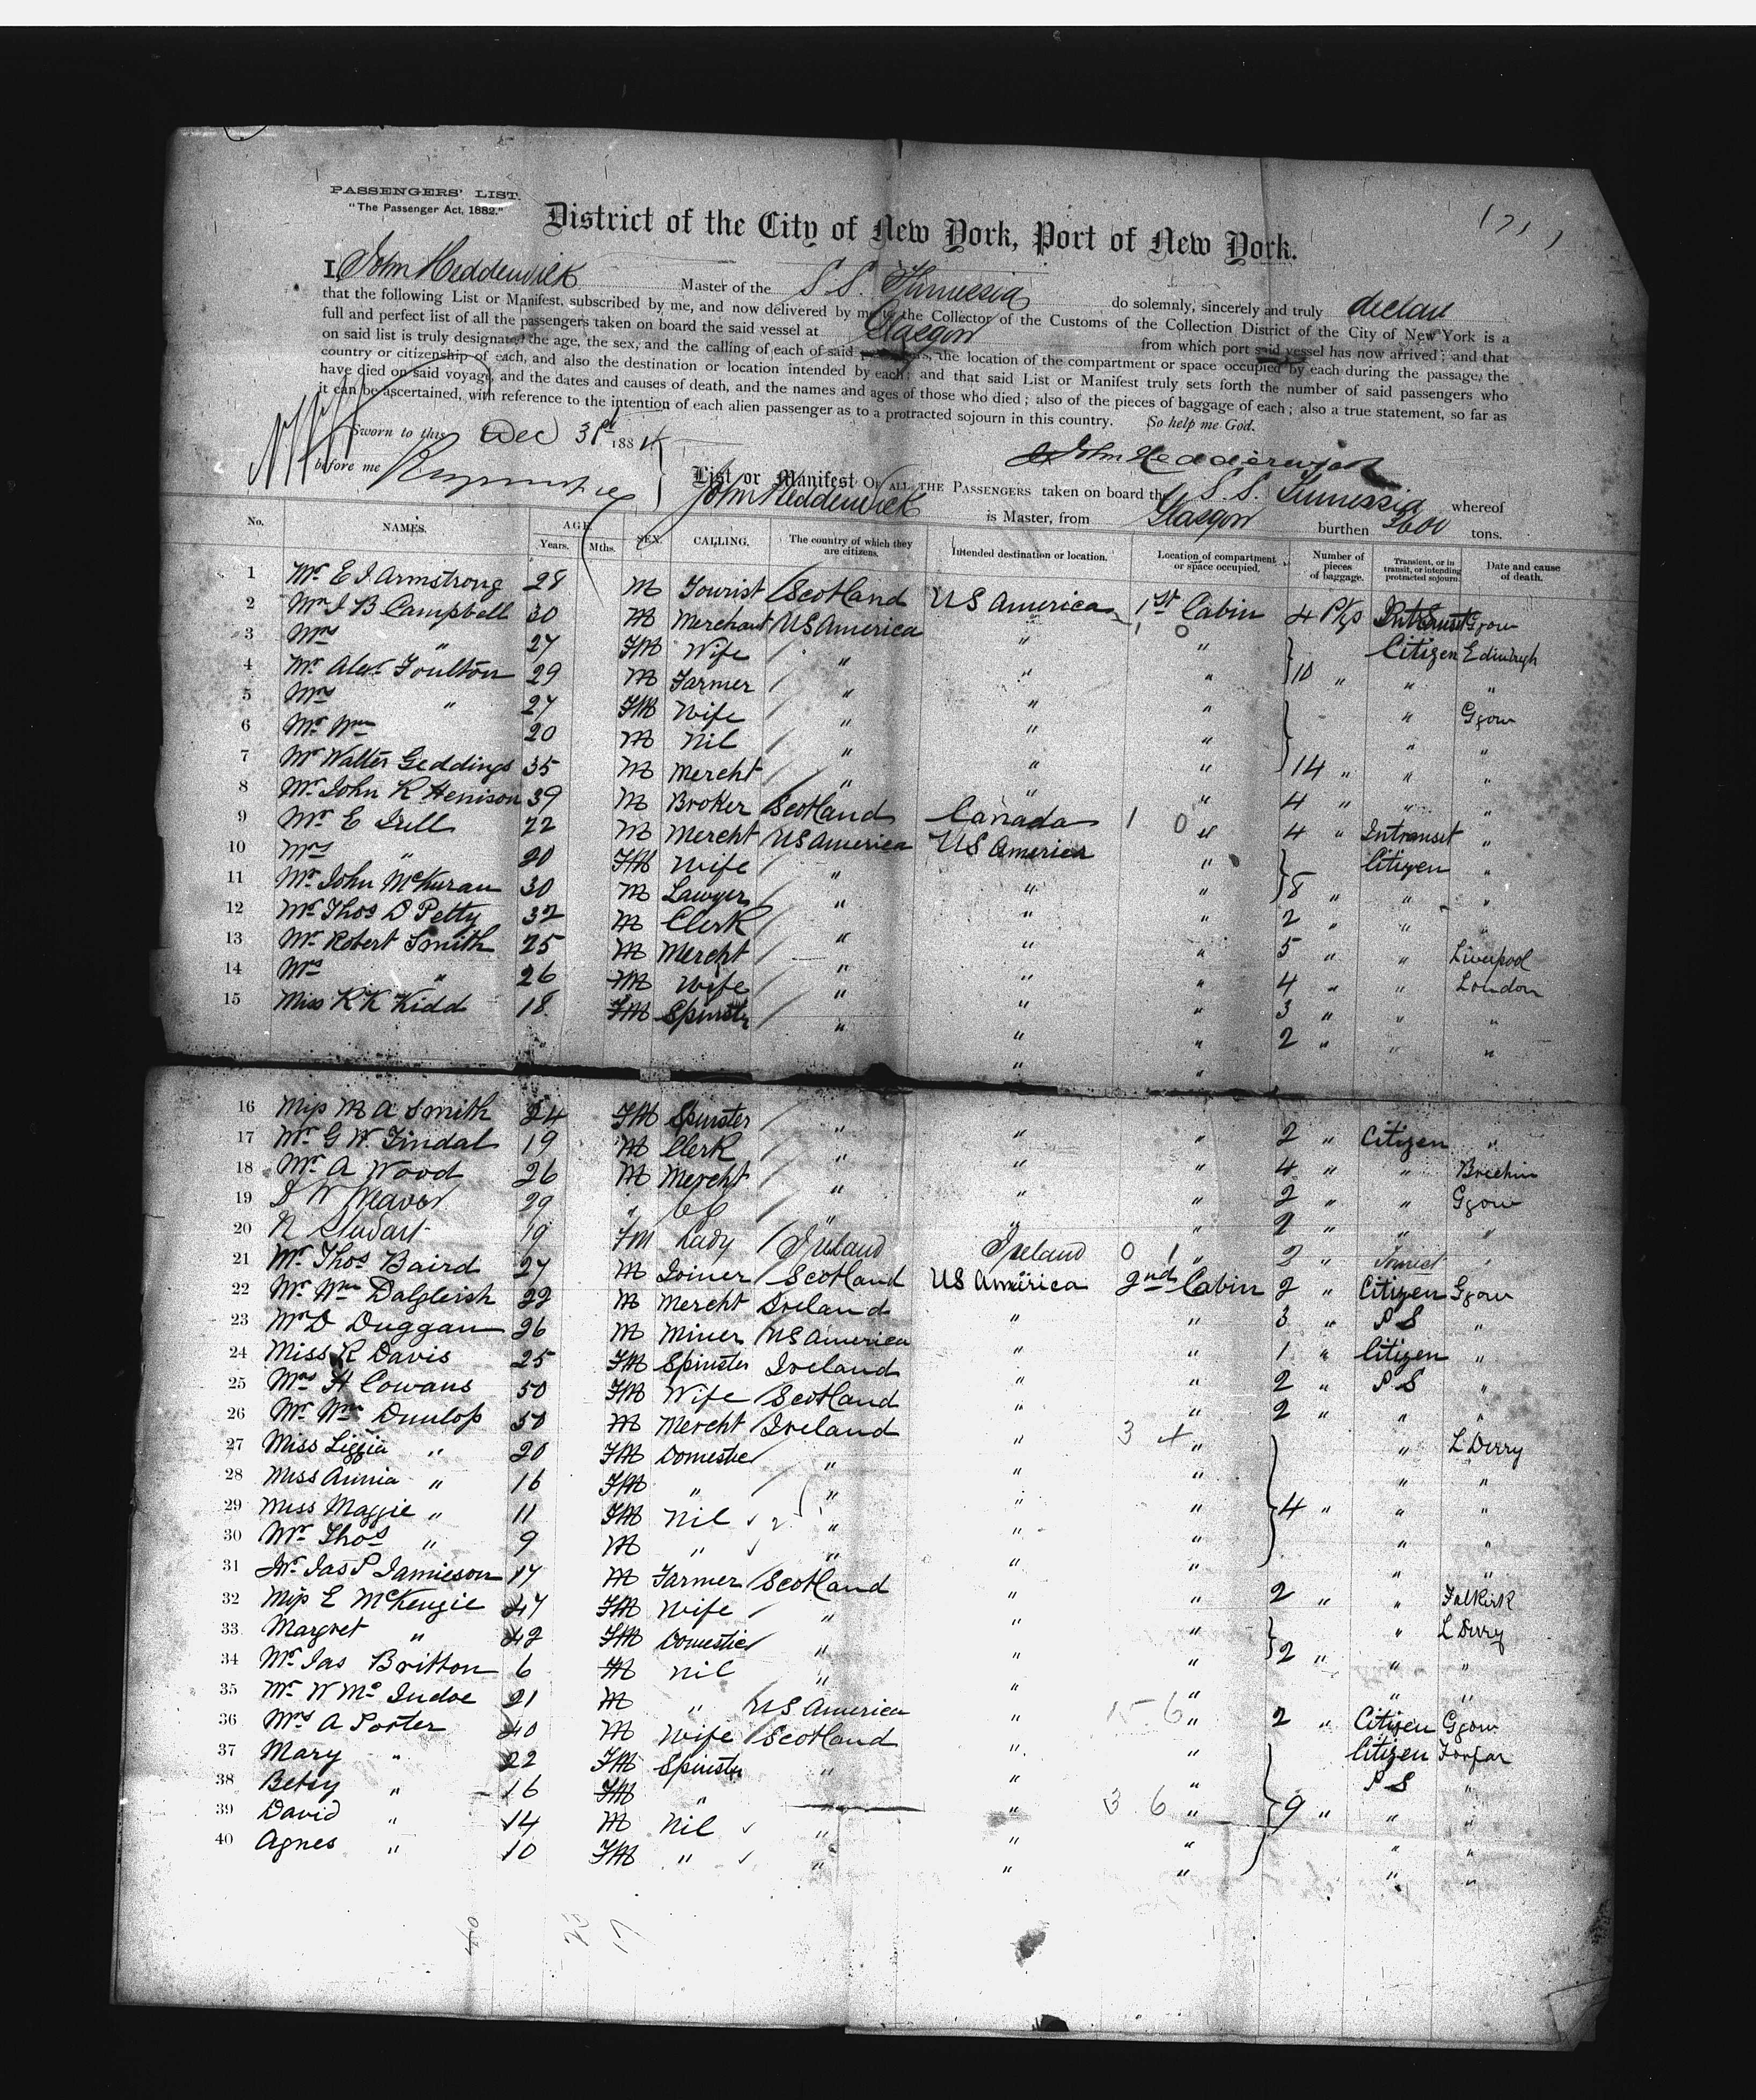 PASSENGERS' LIST.
"The Passenger Act, 1882."
District of the City of New York, Port of New York.
I, John Hedderwick Master of the S.S. Furnessia do solemnly, sincerely and truly declare
that the following List or Manifest, subscribed by me, and now delivered by me to the Collector of the Customs of the Collection District of the City of New York is a
full and perfect list of all the passengers taken on board the said vessel at Glasgow from which port said vessel has now arrived; and that
on said list is truly designated the age, the sex, and the calling of each of said passengers, the location of the compartment or space occupied by each during the passage, the
country or citizenship of each, and also the destination or location intended by each; and that said List or Manifest truly sets forth the number of said passengers who
have died on said voyage, and the dates and causes of death, and the names and ages of those who died; also of the pieces of baggage of each; also a true statement, so far as
it can be ascertained, with reference to the intention of each alien passenger as to a protracted sojourn in this country. So help me God.
Sworn to this Dec 31st 1884
John Hedderwick
before me
List or Manifest OF ALL THE PASSENGERS taken on board the S.S. Furnessia whereof
John Hedderwick is Master, from Glasgow burthen tons.
No. NAMES. AGE. Years. Mths. SEX. CALLING. The country of which they are citizens. Intended destination or location. Location of compartment or space occupied. Number of pieces of baggage. Transient, or in transit, or intending protracted sojourn. Date and cause of death.
1 Mr E J Armstrong 28 M Tourist Scotland US America 1st Cabin 4 Pkgs Intransit Ggow
2 Mr J B Campbell 30 M Merchant US America " " Citizen Edinburgh
3 Mrs " 27 FM Wife " " " 10 " " "
4 Mr Alex Foulton 29 M Farmer " " " " Ggow
5 Mrs " 27 FM Wife " " " " "
6 Mr Wm 20 M Nil " " " 14 " " "
7 Mr Walter Geddings 35 M Mercht " " " 4 " " "
8 Mr John R Henison 39 M Broker Scotland Canada 1 0 " 4 " Intransit "
9 Mr E 22 M Mercht US America US America " Citizen "
10 Mrs " 20 FM Wife " " " 8 " " "
11 Mr John McKuran 30 M Lawyer " " " 2 " " "
12 Mr Thos D Petty 32 M Clerk " " " 5 " " Liverpool
13 Mr Robert Smith 25 M Mercht " " " 4 " " London
14 Mrs " 26 M Wife " " " 3 " " "
15 Miss R K Kidd 18 FM Spinster " " " 2 " " "
16 Miss M A Smith 24 FM Spinster " " " 2 " Citizen "
17 Mr G W Tindal 19 M Clerk " " " 4 " " Brechin
18 Mr A Wood 26 M Mercht " " " 2 " " Ggow
19 J W Weaver 29 " " " " 2 " " "
20 N Stewart 19 FM Lady Ireland Ireland 0 1 " 2 " Tourist "
21 Mr Thos Baird 27 M Joiner Scotland US America 2nd Cabin 2 " Citizen Ggow
22 Mr Wm Dalgleish 22 M Mercht Ireland " " 3 " P S "
23 Mr D Duggan 26 M Miner US America " " 1 " Citizen "
24 Miss R Davis 25 FM Spinster Ireland " " 2 " P S "
25 Mrs H Cowans 50 FM Wife Scotland " " 2 " " "
26 Mr Wm Dunlop 50 M Mercht Ireland " 3 4 " " L Derry
27 Miss Lizzia " 20 FM Domestic " " " " "
28 Miss Annia " 16 FM " " " " 4 " " "
29 Miss Maggie " 11 FM Nil " " " " "
30 Mr Thos " 9 M " " " " " "
31 Mr Jas P Jamieson 17 M Farmer Scotland " " 2 " " Falkirk
32 Miss E McKenzie 47 FM Wife " " " " L Derry
33 Margret " 42 FM Domestic " " " 2 " " "
34 Mr Jas Britton 6 M Nil " " " " "
35 Mr W Mc Indoe 21 M " US America " 15 6 " 2 " Citizen Ggow
36 Mrs A Porter 40 M Wife Scotland " " Citizen Forfar
37 Mary " 22 FM Spinster " " " P S "
38 Betsy " 16 FM " " 3 6 " 9 " " "
39 David " 14 M Nil " " " " "
40 Agnes " 10 FM " " " " " "
40